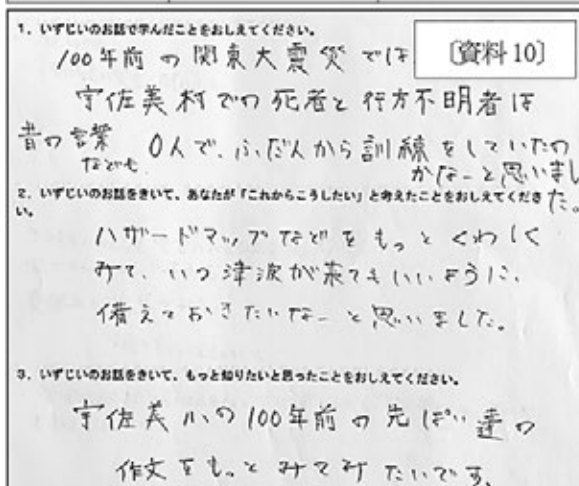 1、いずじいのお話で学んだことをおしえてください。
[資料10]
100年前の関東大震災では
宇佐美村での死者と行方不明者は
昔の言葉なども
0人で、ふだんから訓練をしていたの
かなーと思いました。
2、いずじいのお話をきいて、あなたが「これからこうしたい」と考えたことをおしえてください。
ハザードマップなどをもっとくわしく
みて、いつ津波が来てもいいように、
備えておきたいなーと思いました。
3、いずじいのお話をきいて、もっと知りたいと思ったことをおしえてください。
宇佐美小の100年前の先ぱい達の
作文をもっとみてみたいです。